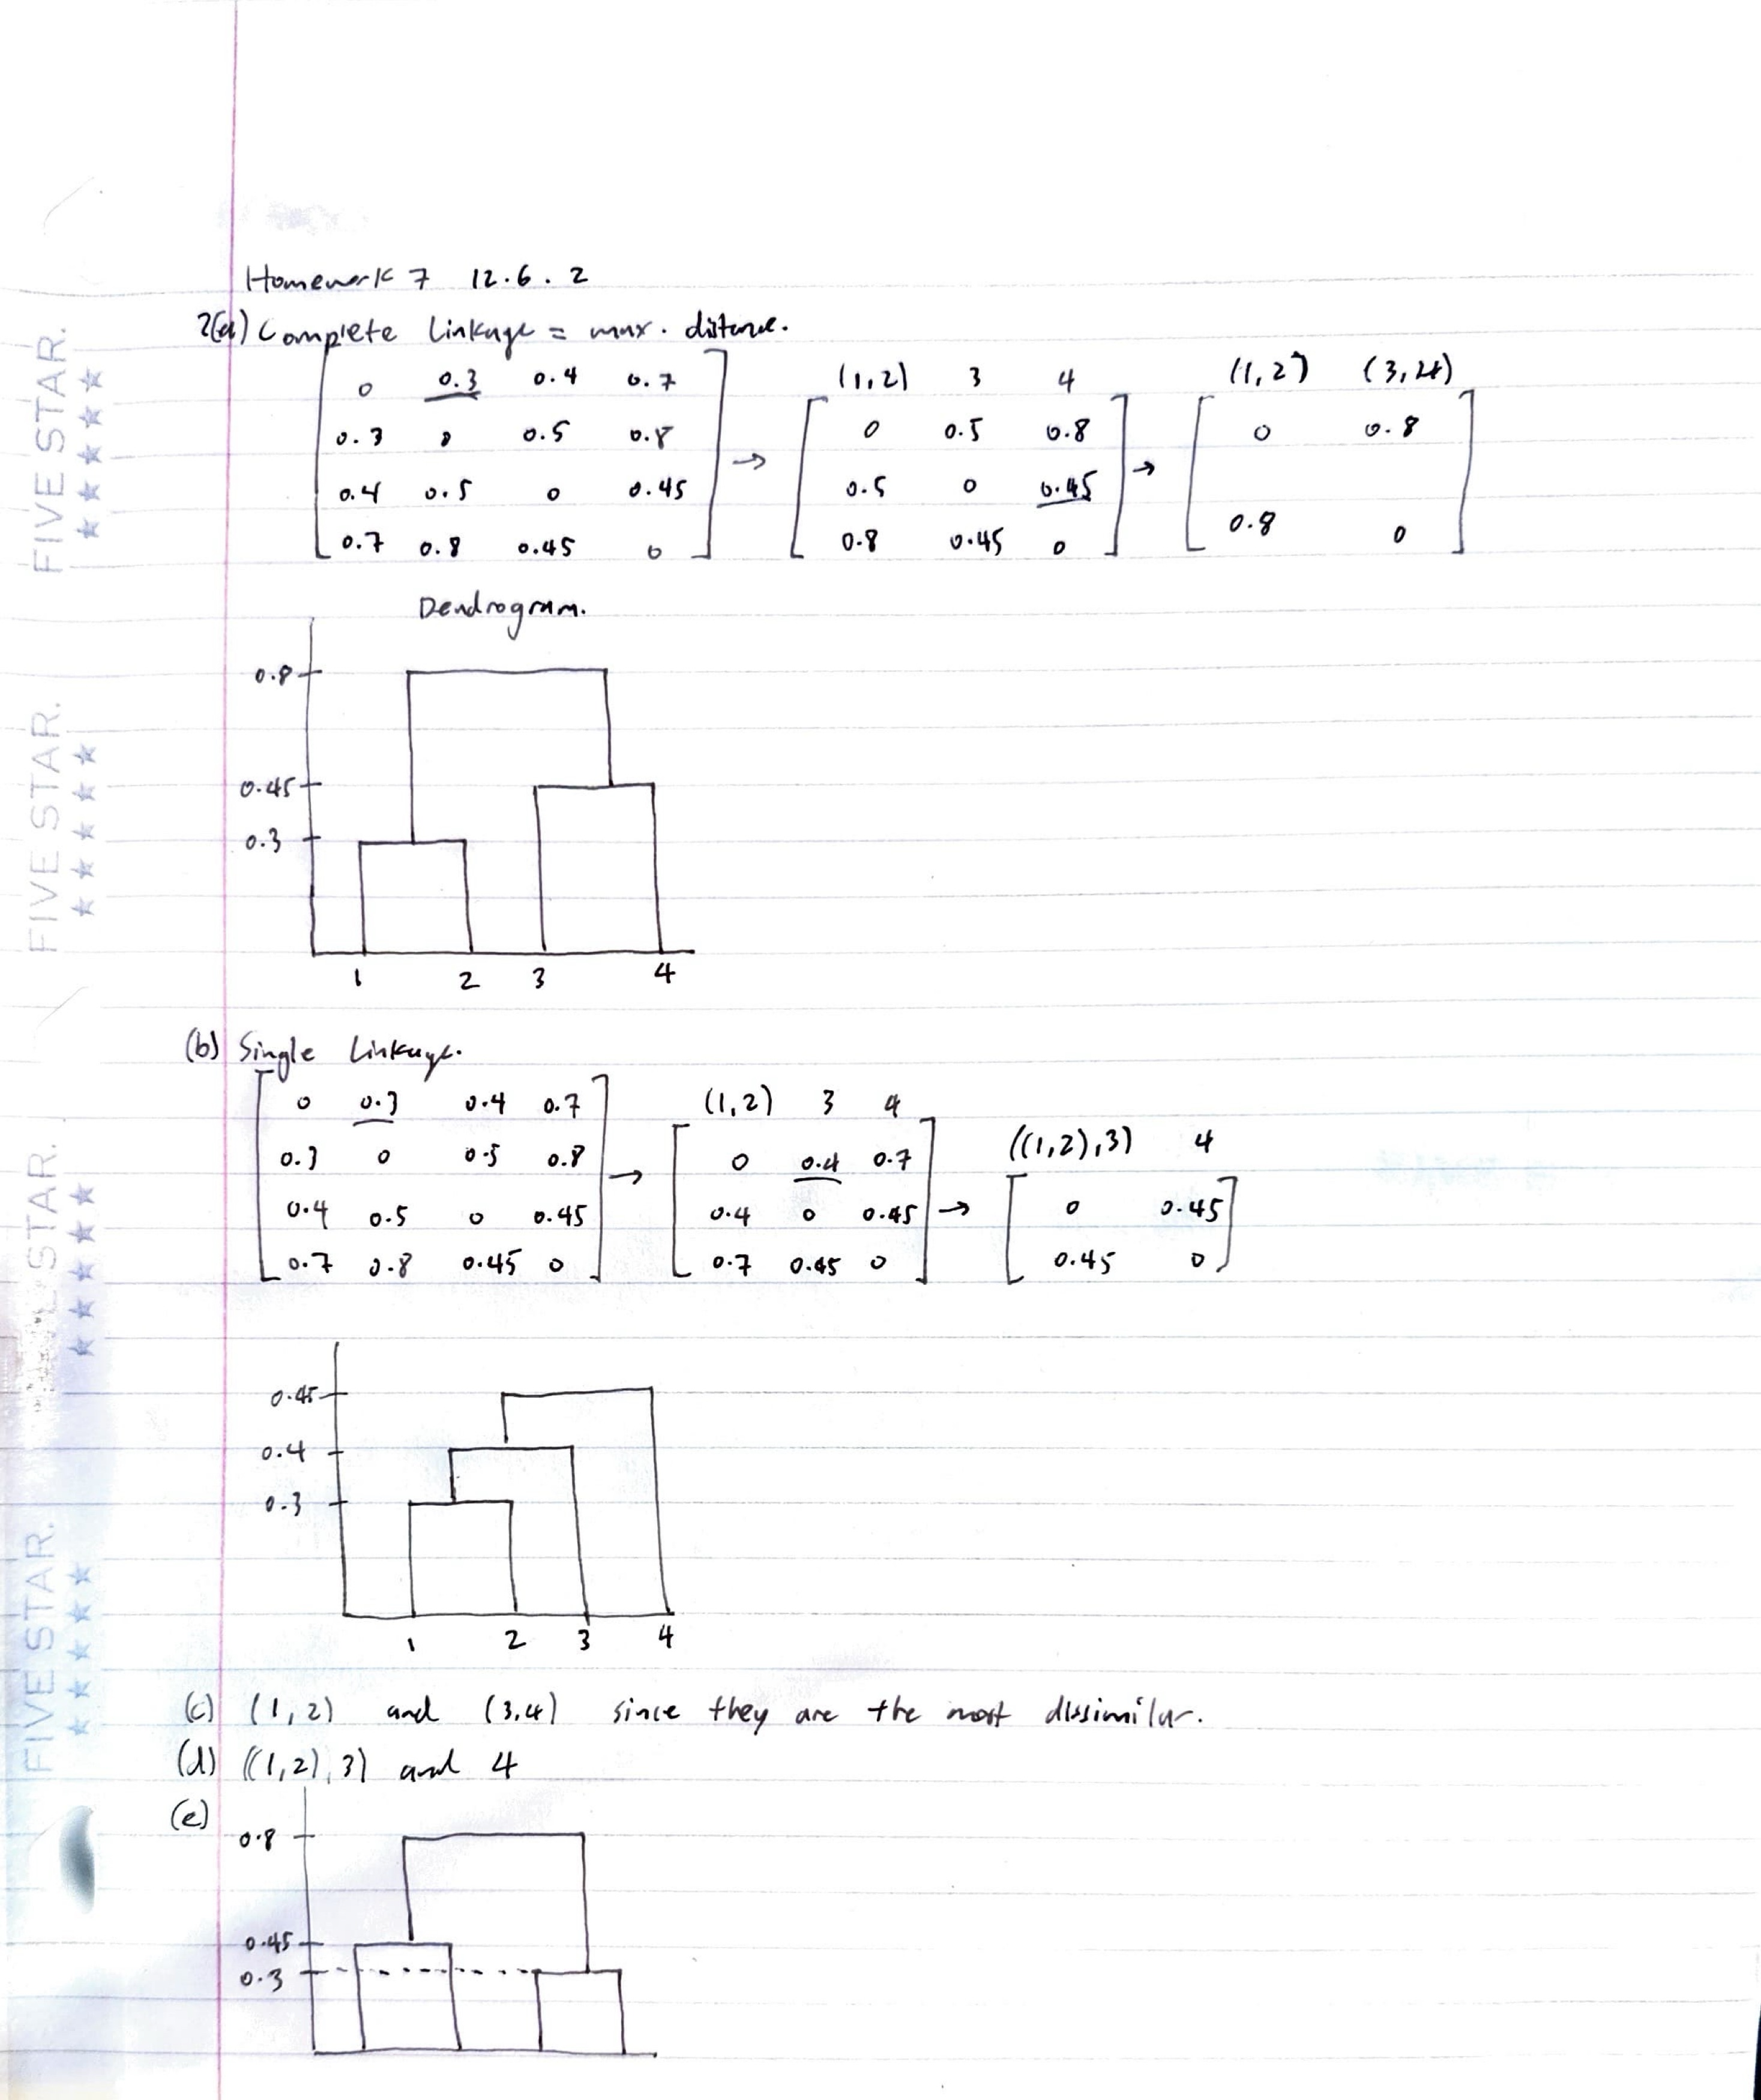 Homework 7 12.6.2
2(a) Complete linkage = max. distance.
0 0.3 0.4 0.7
0.3 0 0.5 0.8
0.4 0.5 0 0.45
0.7 0.8 0.45 0
→
(1,2) 3 4
0 0.5 0.8
0.5 0 0.45
0.8 0.45 0
→
(1,2) (3,4)
0 0.8
0.8 0
Dendrogram.
0.8
0.45
0.3
1 2 3 4
(b) Single linkage.
0 0.3 0.4 0.7
0.3 0 0.5 0.8
0.4 0.5 0 0.45
0.7 0.8 0.45 0
→
(1,2) 3 4
0 0.4 0.7
0.4 0 0.45
0.7 0.45 0
→
((1,2),3) 4
0 0.45
0.45 0
0.45
0.4
0.3
1 2 3 4
(c) (1,2) and (3,4) since they are the most dissimilar.
(d) ((1,2),3) and 4
(e)
0.8
0.45
0.3
FIVE STAR.
FIVE STAR.
FIVE STAR.
FIVE STAR.